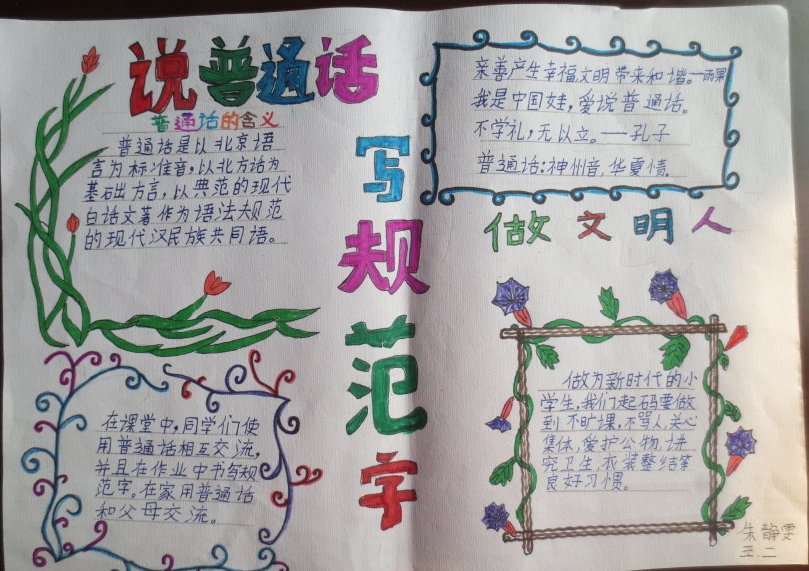 说普通话
普通话的含义
普通话是以北京语
言为标准音,以北方话为
基础方言,以典范的现代
白话文著作为语法规范
的现代汉民族共同语。
写规范字
亲善产生幸福,文明带来和谐。—雨果
我是中国娃,爱说普通话。
不学礼,无以立。——孔子
普通话:神州音,华夏情。
做文明人
在课堂中,同学们使
用普通话相互交流,
并且在作业中书写规
范字。在家用普通话
和父母交流。
做为新时代的小
学生,我们起码要做
到不旷课,不骂人,关心
集体,爱护公物,讲
究卫生,衣装整洁等
良好习惯。
朱静雯
三.二